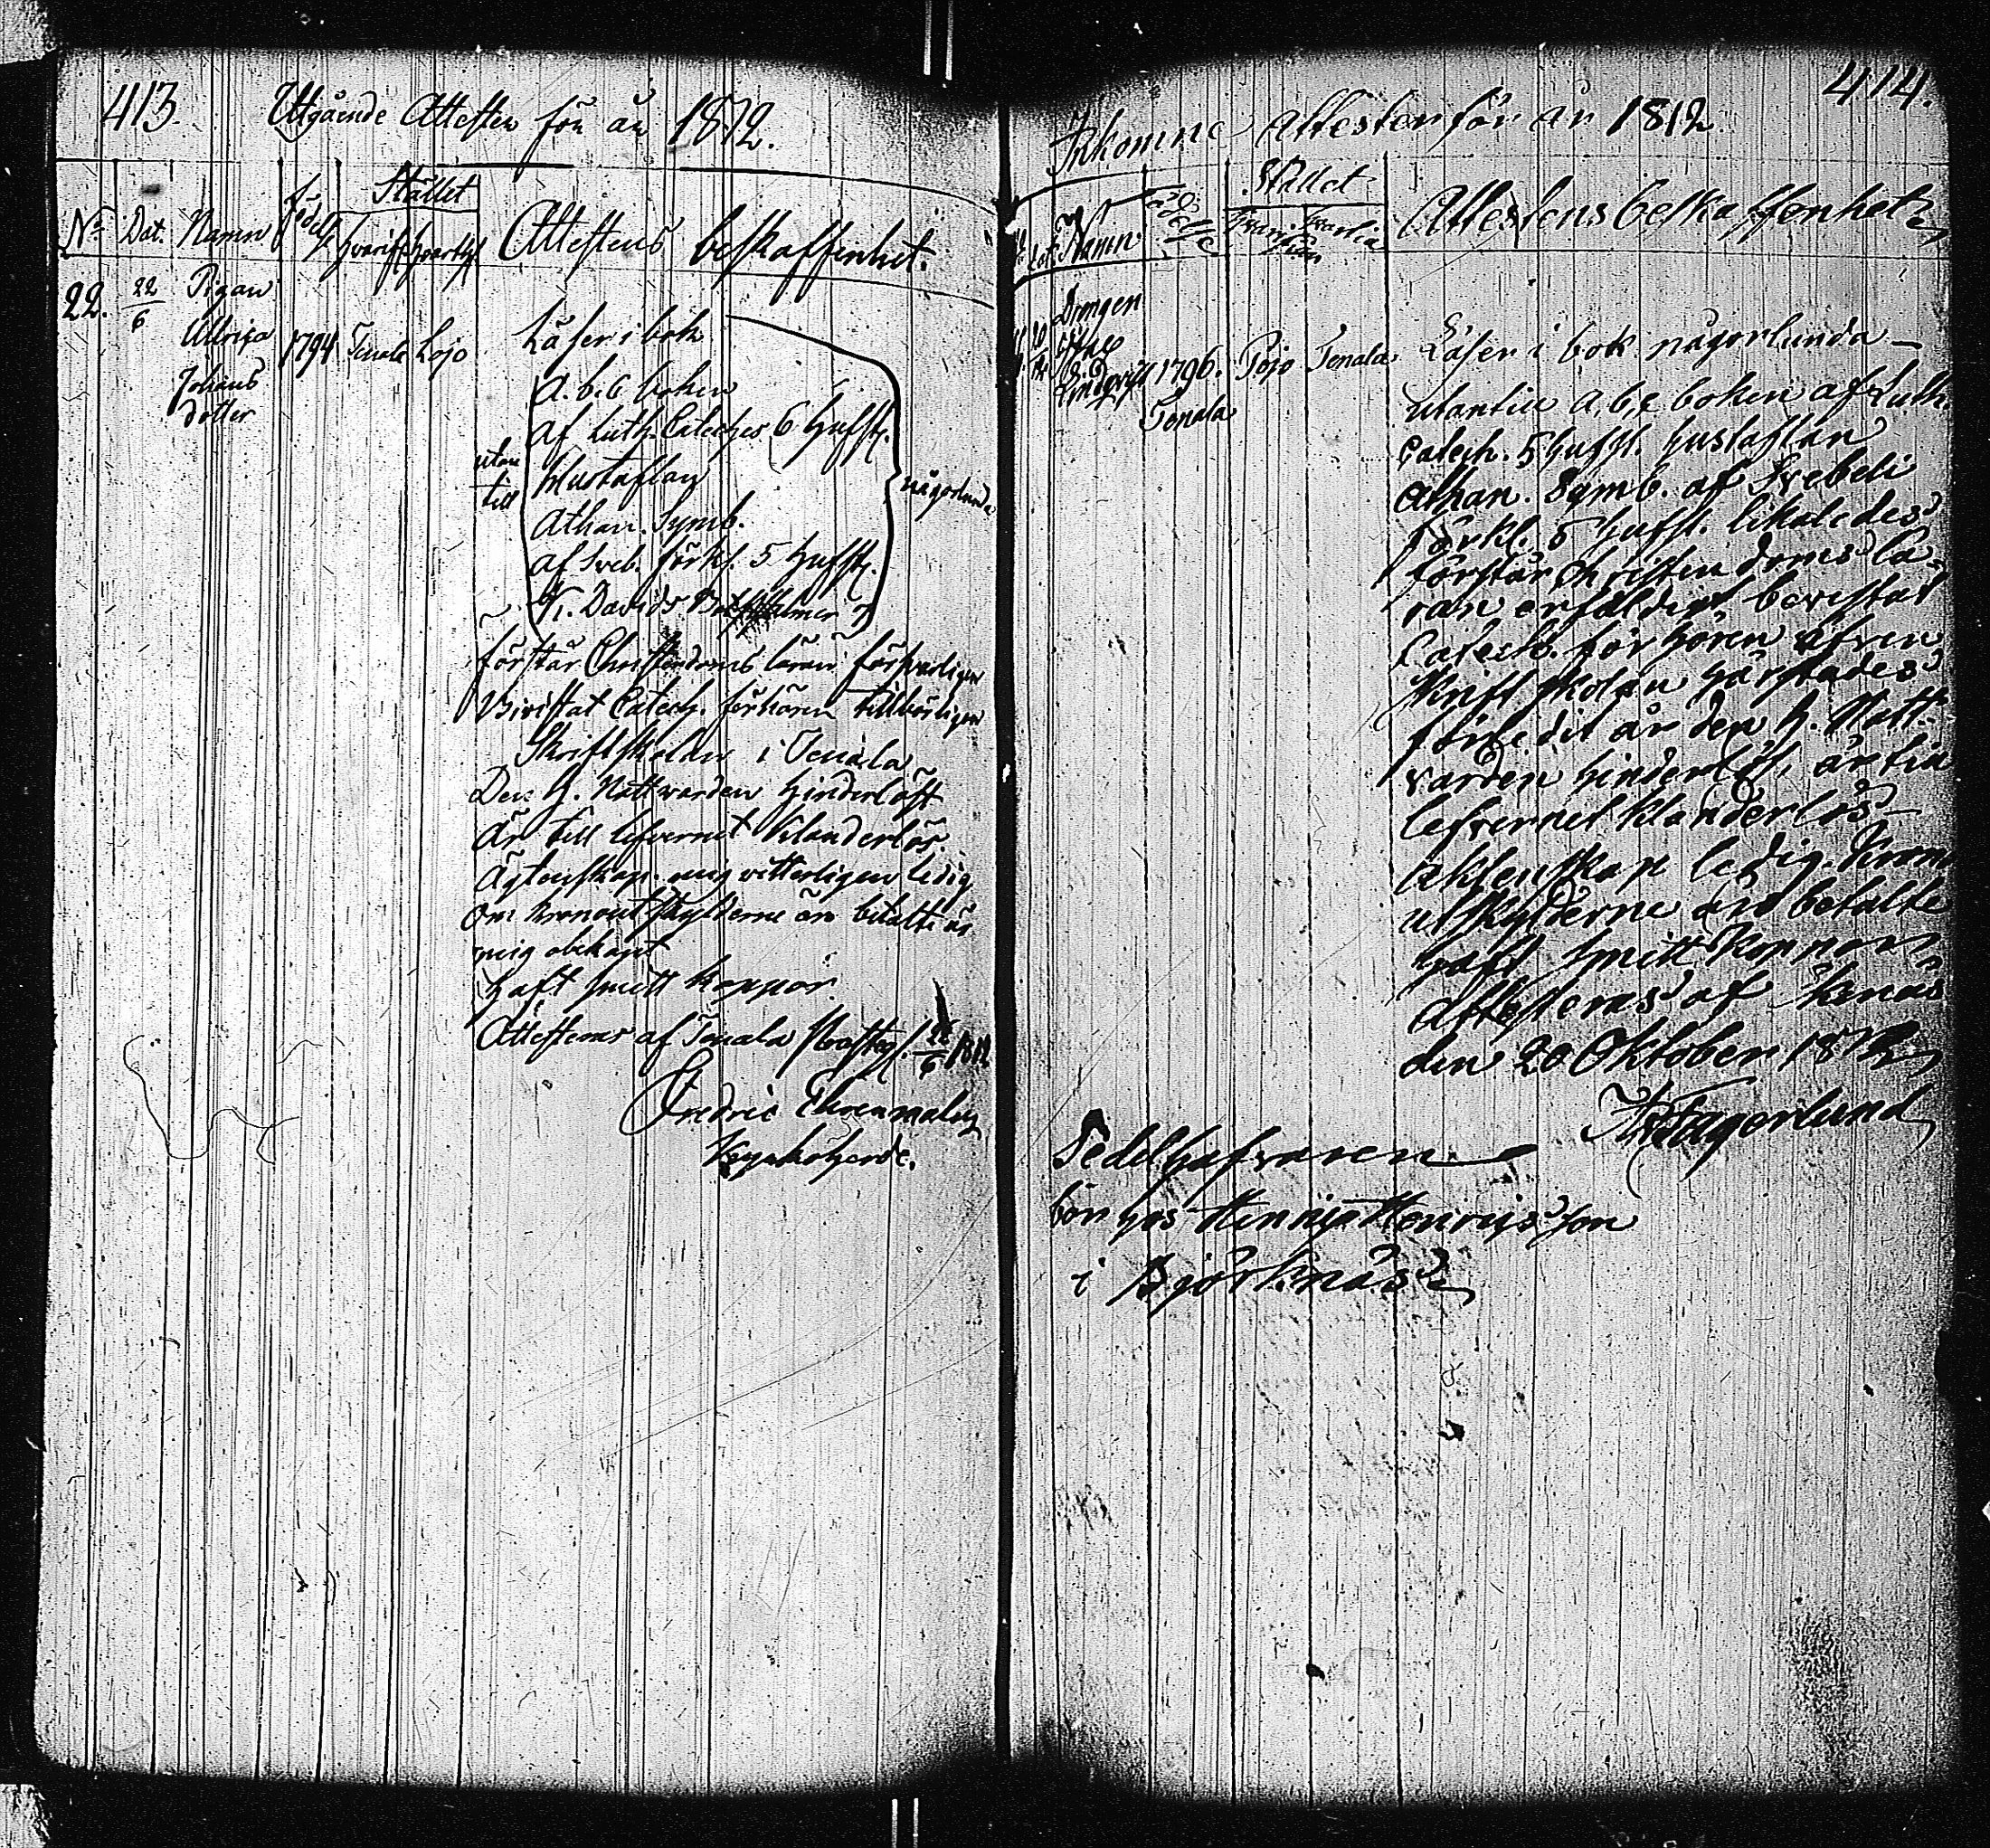 413.
Utgående Attester för år 1812.
Nº Dat. Namn född Stället
hvarifr. hvarthn
Attestens beskaffenhet.
22. 22/6 Pigan
Ullrica
Johans
dotter
1794 Tenala Lojo
Läser i bok
utan
till
A. b. c boken
af Luth. Catechis 6 Hufst.
Hustaflan
Athan. Symb.
af Sveb. förkl. 5 Hufst.
K. Davids Botpsalmer 7
någorlunda
förstår Christendoms läran försvarligen
Bivistat Catech. förhören tillbörligen
Skriftskolan i Tenala
Den H. Nattvarden hinderlöst
Är till lefvernet klanderlös.
Ägtenskap. mig vitterligen ledig
Om kronoutskylderne äro betalte är
mig obekant
haft smitt koppor.
Attesteras af Tenala Prosteg. 22/6 1812
Fredric Ehrenmalm
Kyrkoherde.
414.
Inkomne Attester för år 1812
Namn Födelse Stället
Hvarifrån Hvartia
Attestens beskaffenhet
Drengen
Lindqvist 1796. Pojo Tenala
Tenala
Läser i bok någorlunda
utantill a, b, c boken af Luth.
Catech. 5 hufst. hustaflan
Athan. Symb. af Svebeli
förkl. 5 hufst. likaledes
förstår Christendoms lä-
ran erfoldert bevistat
Catech. förhören äfven
skriftskolan härstädes
förledit år den h. Natt-
varden hinderlöst, är till
lefvernet klanderlös
äktenskap ledig. Krono
utskylderne äro betalte
haft smitt koppor
Attesteras af
den 20 Oktober 1812
Fagerlund
Sedelhafvaren
bör hos Henric Henricsson
i Björknäs